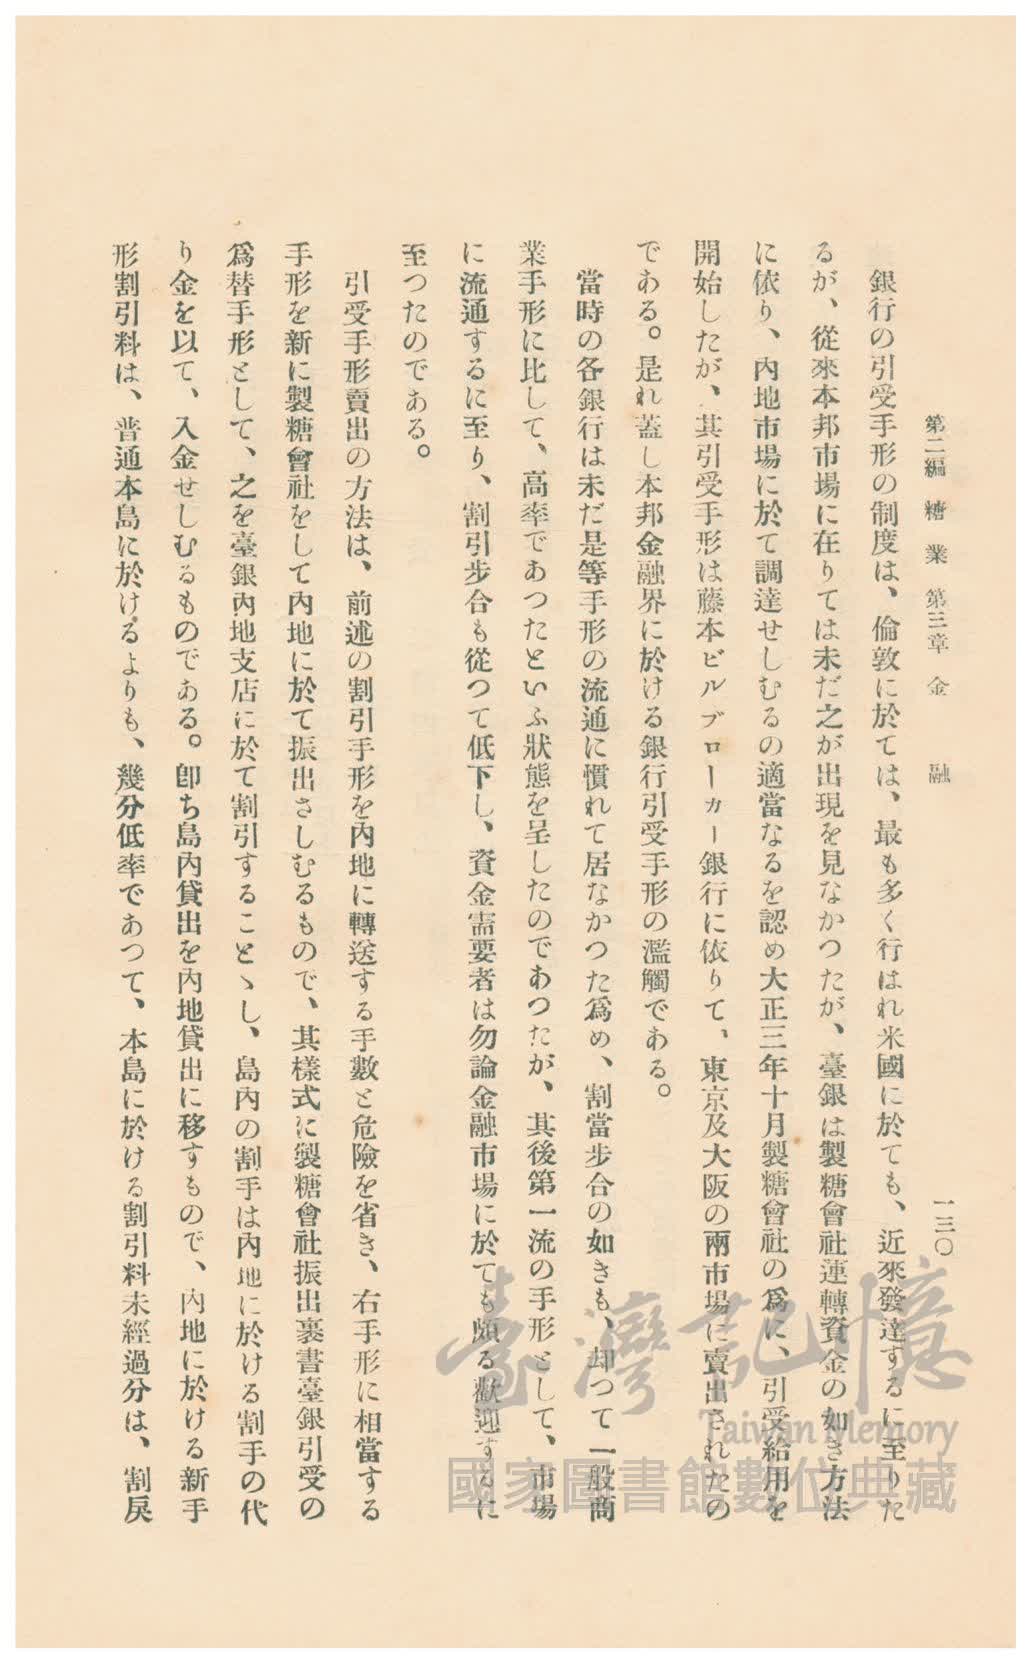 第二編　糖　業　第三章　金　　融
一三〇
銀行の引受手形の制度は、倫敦に於ては、最も多く行はれ米國に於ても、近來發達するに至りた
るが、從來本邦市場に在りては未だ之が出現を見なかつたが、臺銀は製糖會社運轉資金の如き方法
に依り、內地市場に於て調達せしむるの適當なるを認め大正三年十月製糖會社の爲に、引受給用を
開始したが、其引受手形は藤本ビルブローカー銀行に依りて、東京及大阪の兩市場に賣出されたの
である。是れ蓋し本邦金融界に於ける銀行引受手形の濫觸である。
當時の各銀行は未だ是等手形の流通に慣れて居なかつた爲め、割當步合の如きも、却つて一般商
業手形に比して、高率であつたといふ狀態を呈したのであつたが、其後第一流の手形として、市場
に流通するに至り、割引步合も從つて低下し、資金需要者は勿論金融市場に於ても頗る歡迎するに
至つたのである。
引受手形賣出の方法は、前述の割引手形を內地に轉送する手數と危險を省き、右手形に相當する
手形を新に製糖會社をして內地に於て振出さしむるもので、其樣式に製糖會社振出裏書臺銀引受の
爲替手形として、之を臺銀內地支店に於て割引することゝし、島內の割手は內地に於ける割手の代
り金を以て、入金せしむるものである。卽ち島內貸出を內地貸出に移すもので、內地に於ける新手
形割引料は、普通本島に於けるよりも、幾分低率であつて、本島に於ける割引料未經過分は、割戾
臺灣記憶
Taiwan Memory
國家圖書館數位典藏